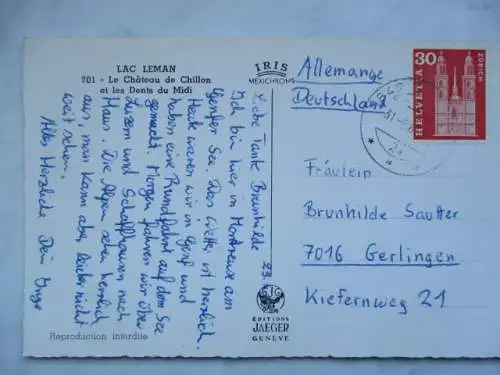 LAC LEMAN
701 - Le Château de Chillon
et les Dents du Midi
IRIS
MEXICHROME
Allemange
Deutschland
30
HELVETIA
ZÜRICH
Liebe Tante Brunhilde
Ich bin hier in Montreux am
Genfer See. Das Wetter ist herrlich.
Heute waren wir in Genf und
haben eine Rundfahrt auf dem See
gemacht. Morgen fahren wir über
Luzern und Schaffhausen nach
Haus. Die Alpen sehen herrlich
aus, man kann aber leider nicht
weit sehen.
Alles Herzliche Dein Ingo
Fräulein
Brunhilde Sautter
7016 Gerlingen
Kiefernweg 21
EDITIONS
JAEGER
GENÈVE
Reproduction interdite